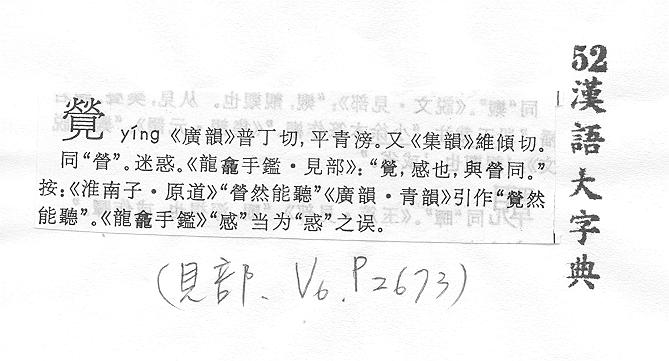 覮 yíng《廣韻》普丁切,平青滂。又《集韻》維傾切。
同“營”。迷惑。《龍龕手鑑·見部》:“覮,感也,與營同。”
按:《淮南子·原道》“營然能聽”《廣韻·青韻》引作“覮然
能聽”。《龍龕手鑑》“感”当为“惑”之误。
(見部、V6.P2673)
52漢語大字典